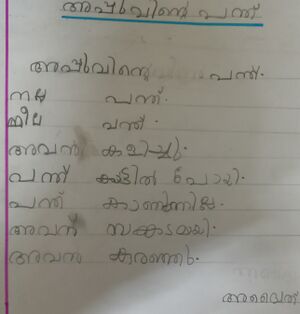 അപ്പുവിന്റെ പന്ത്
അപ്പുവിന്റെ പന്ത്.
നല്ല പന്ത്.
നീല പന്ത്.
അവൻ കളിച്ചു.
പന്ത് കാട്ടിൽ പോയി.
പന്ത് കാണുന്നില്ല.
അവന് സങ്കടമായി.
അവൻ കരഞ്ഞു.
അദ്വൈത്